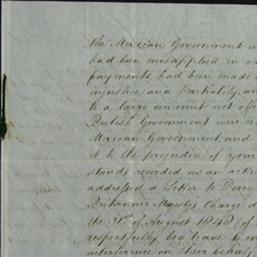 the Mexican Government
had been misapplied in
payments, had been made
injustice and partiality, and
to a large amount not
British Government were
Mexican Government, and
it to the prejudice of your
stands recorded as an
addressed a Letter to Percy
Britannic Majesty's Chargé d
the 31st of August 1848 (of
respectfully beg leave to
interference on their behalf